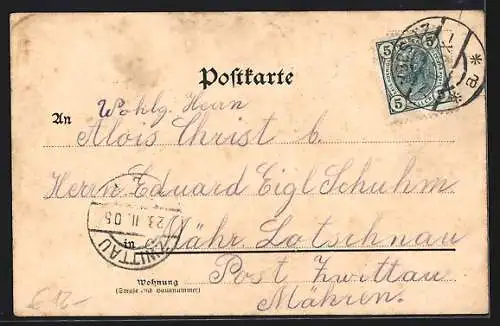 Postkarte
Wohlg. Herrn
An Alois Christ b.
Herrn Eduard Eigl Schuhm
in Mähr. Lotschnau
Post Zwittau
Mähren.
Wohnung
(Straße und Hausnummer)
5 5
5 5
23 II 05
ZWITTAU